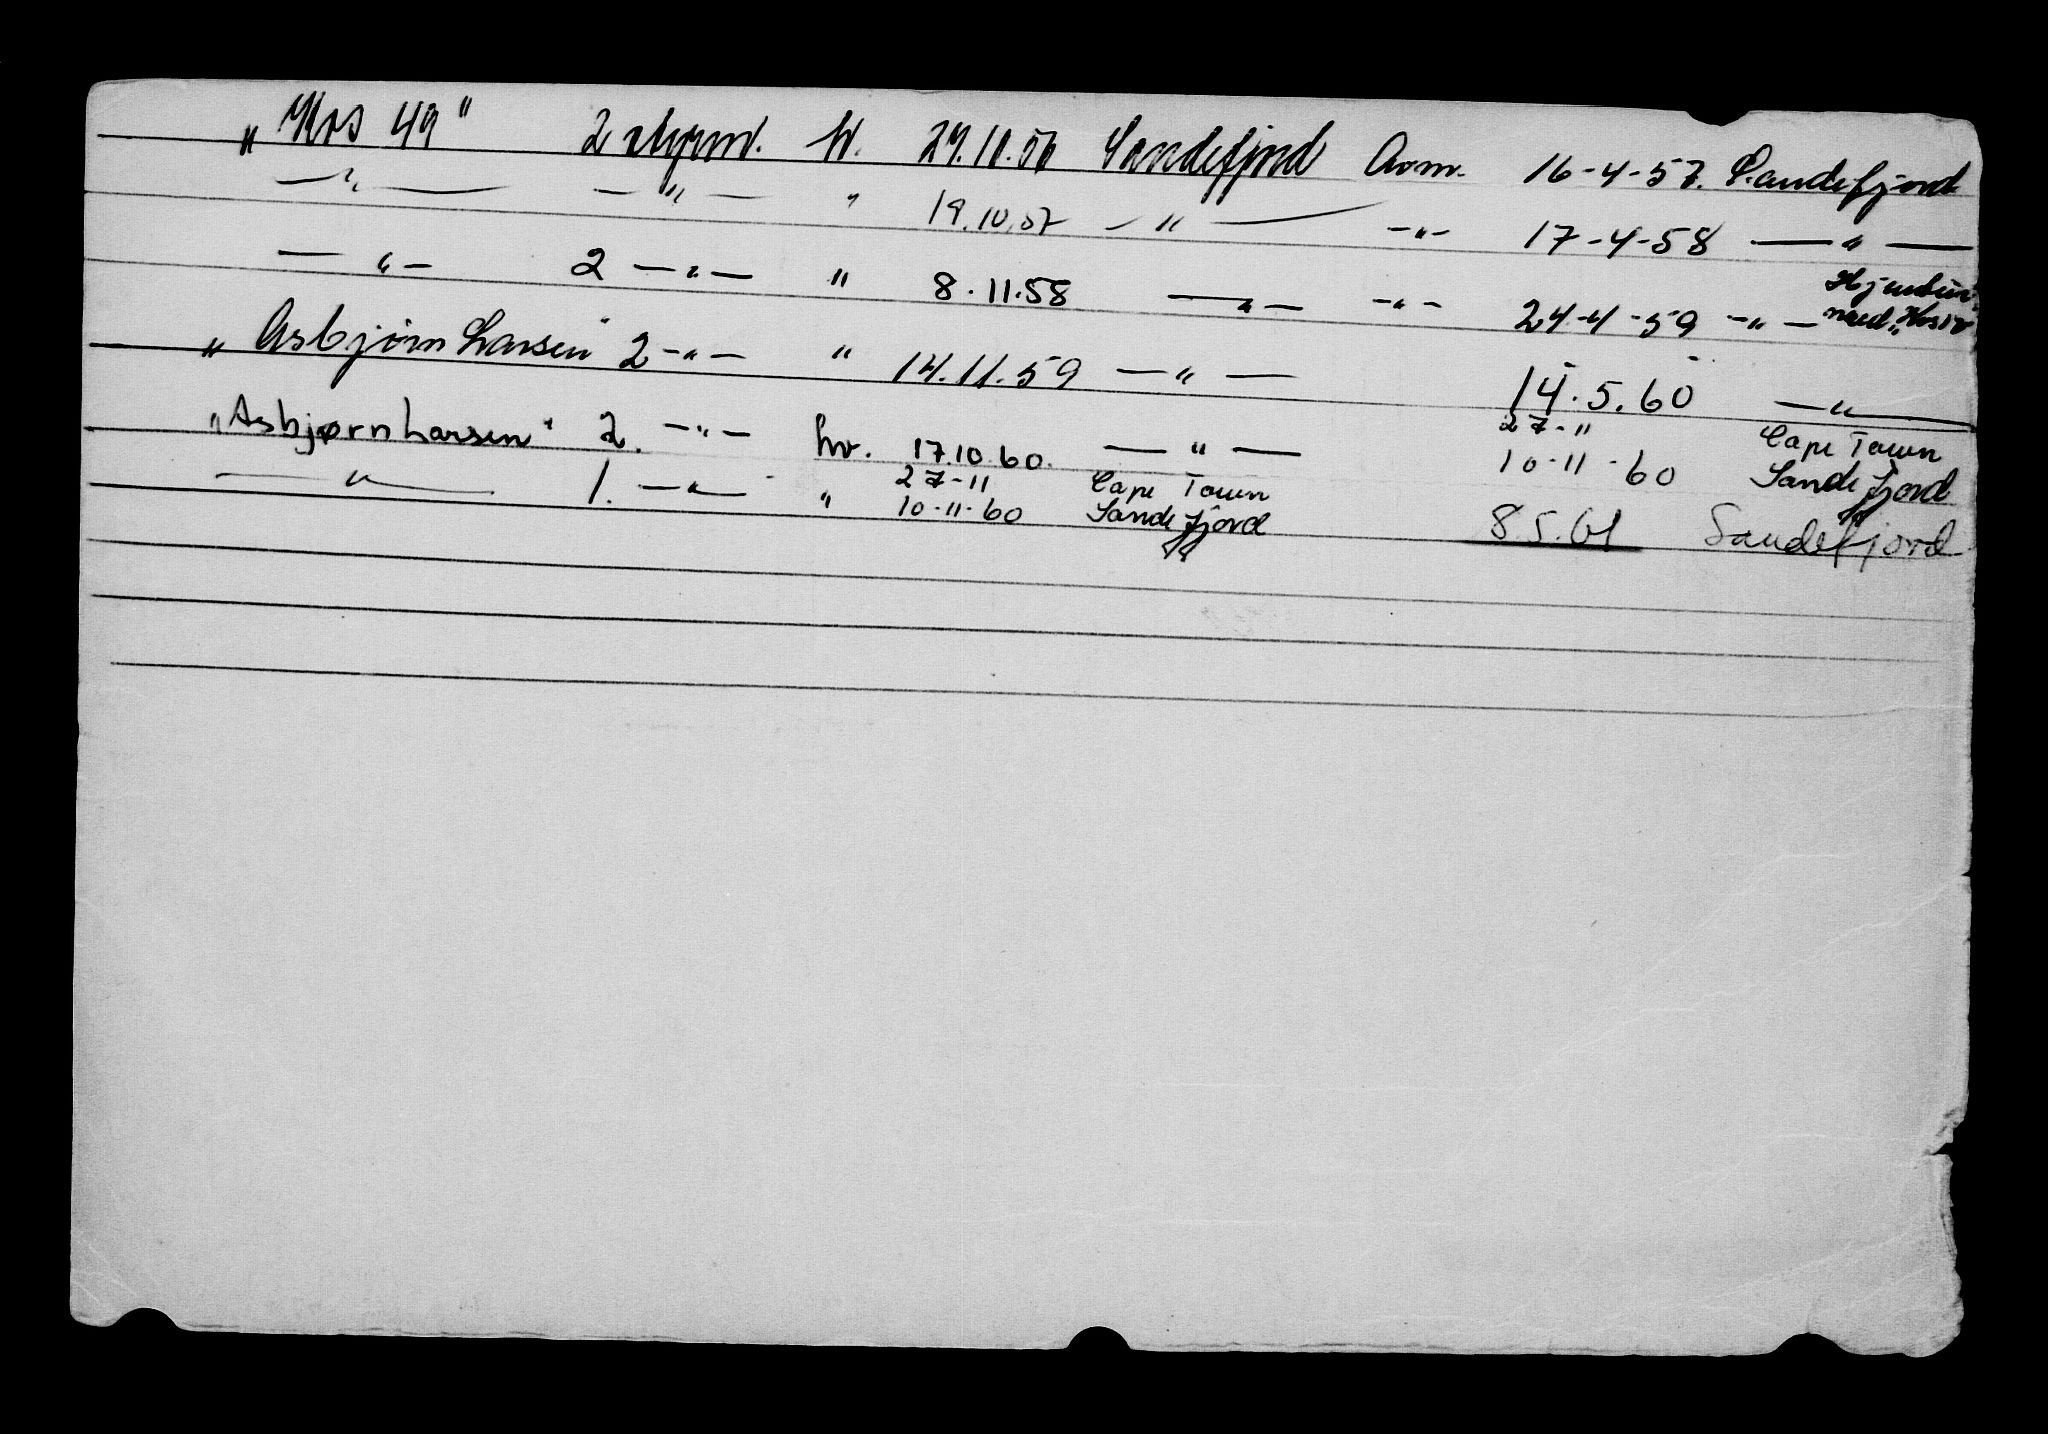 „ Kos 49 " 2 styrm. hv. 29.10.56 Sandefjord Avm. 16-4-57. Sandefjord
— " — — " — " 19.10.57 — " — - " - 17-4-58 — " —
— " — 2 — " — " 8.11.58 — " — - " - 24-4-59 - " — med „Kos
„ Asbjørn Larsen " 2 - " — " 14.11.59 — " — 14.5.60 — " —
„ Asbjørn Larsen " 2. — " — hv. 17.10.60. — " — 27-11 Cape Town
10-11-60 Sandefjord
— " — 1. — " — " 27-11 Cape Town
10-11-60 Sandefjord 8.5.61 Sandefjord